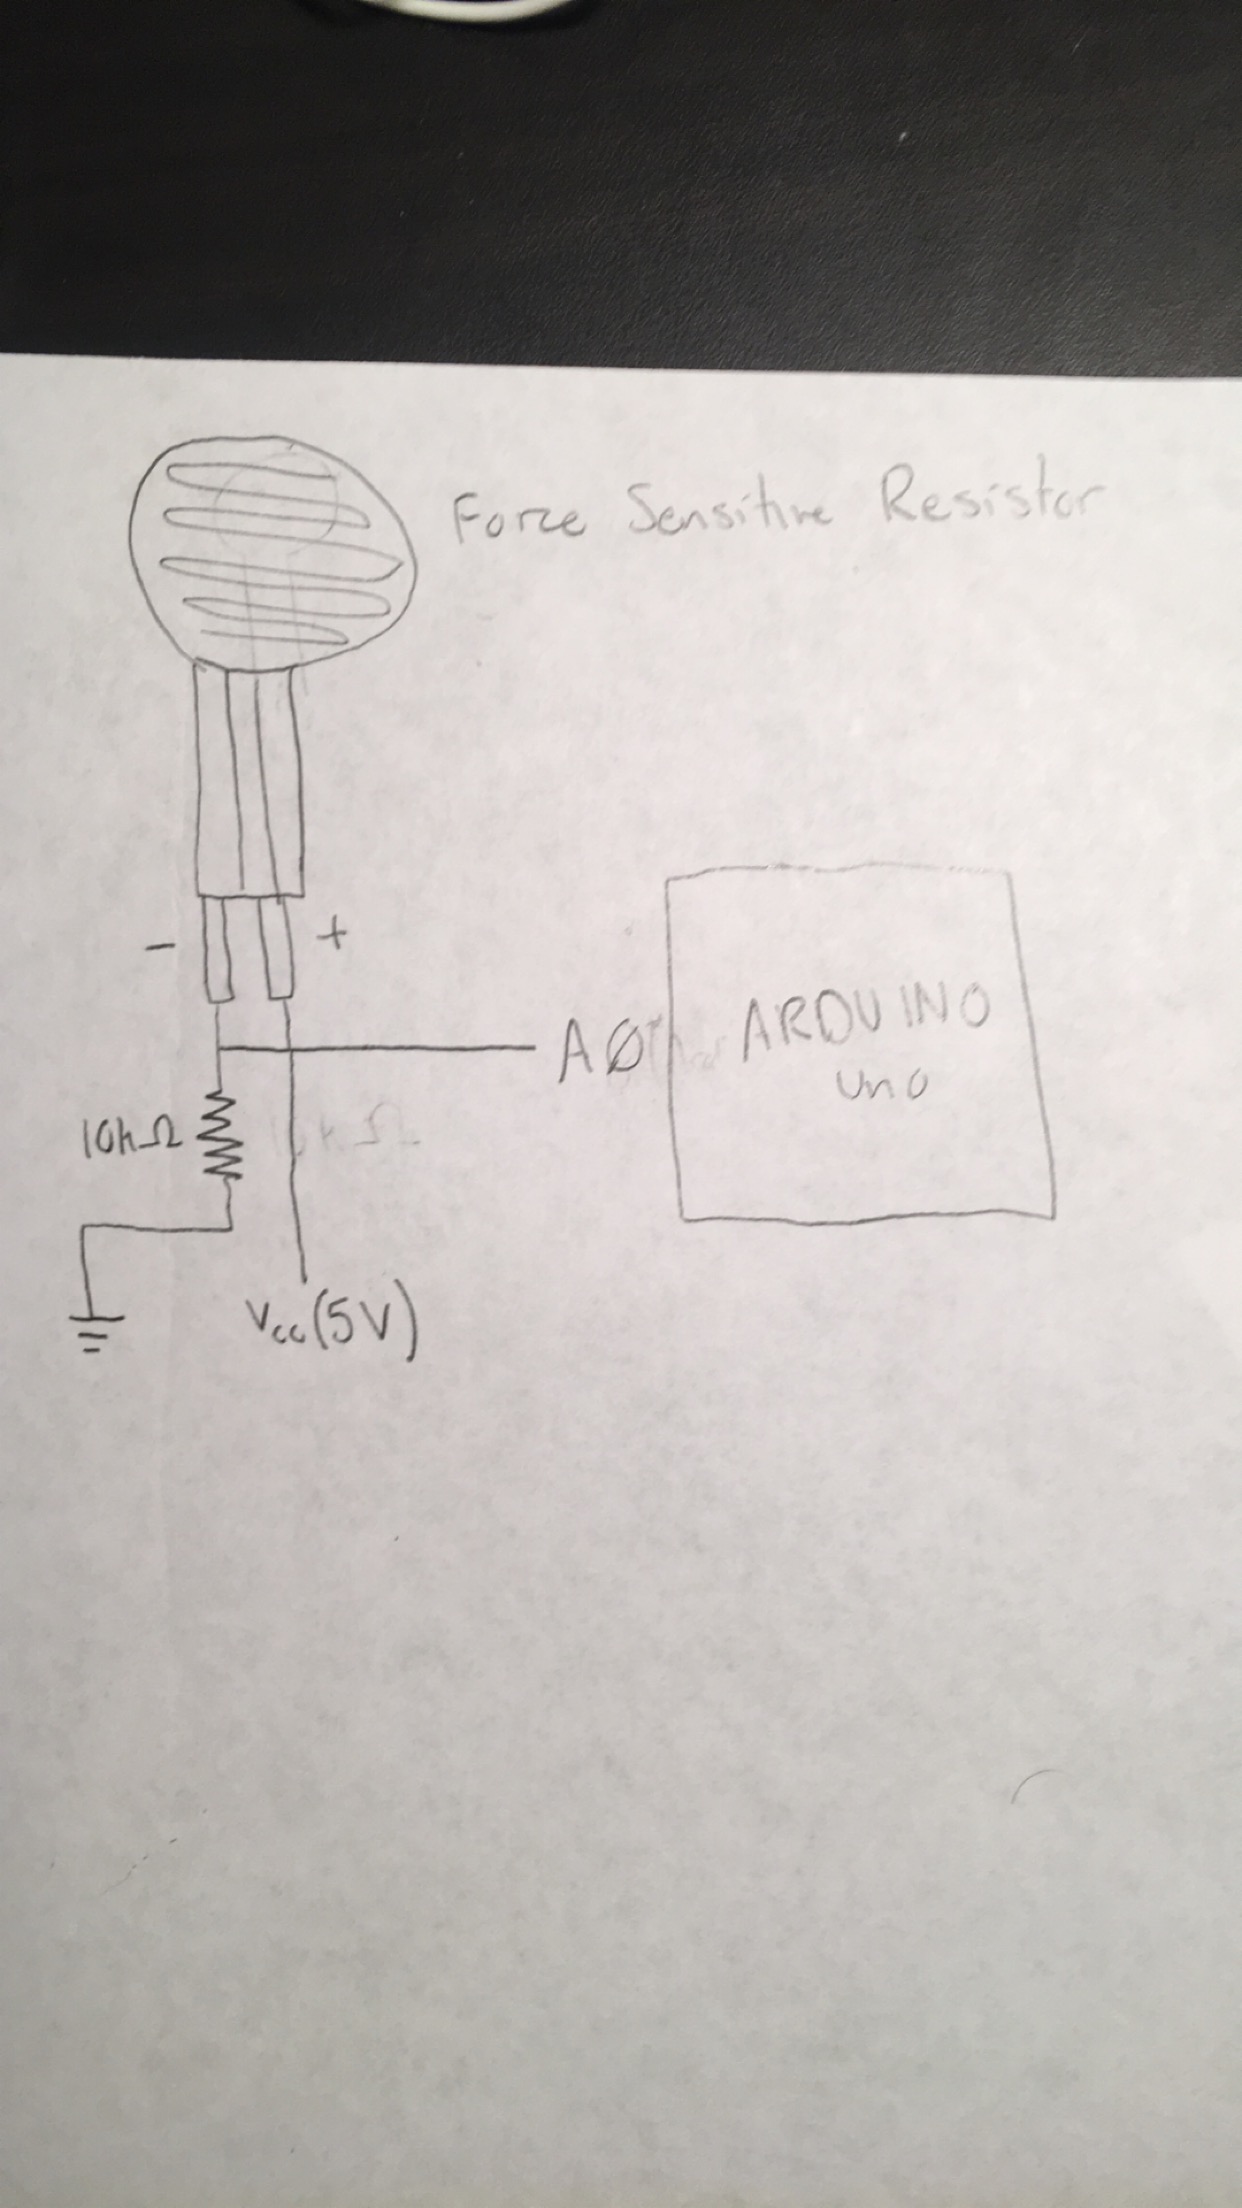 Force Sensitive Resistor
- +
AØ
ARDUINO
uno
10kΩ
kΩ
Vcc(5V)